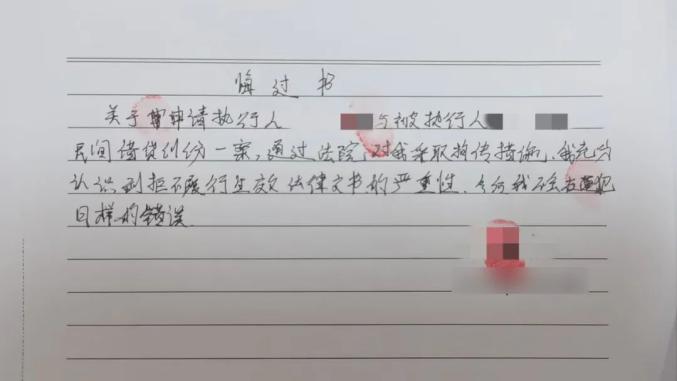 悔过书
关于申请执行人 与被执行人
民间借贷纠纷一案，通过法院，对我采取拘传措施，我充分
认识到拒不履行生效法律文书的严重性，今后我不在重犯
同样的错误